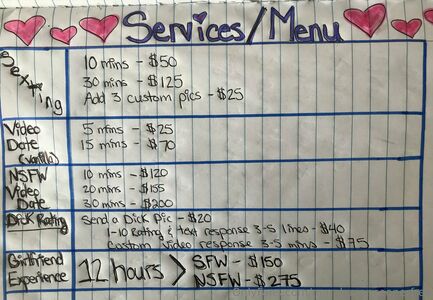 Services/Menu
Sexting
10 mins - $50
30 mins - $125
Add 3 custom pics - $25
Video Date (vanilla)
5 mins - $25
15 mins - $70
NSFW Video Date
10 mins - $120
20 mins - $155
30 mins - $200
Dick Rating
Send a Dick Pic - $20
1-10 Rating & text response 3-5 lines - $40
Custom Video response 3-5 mins - $75
Girlfriend Experience
12 hours >
SFW - $150
NSFW - $275